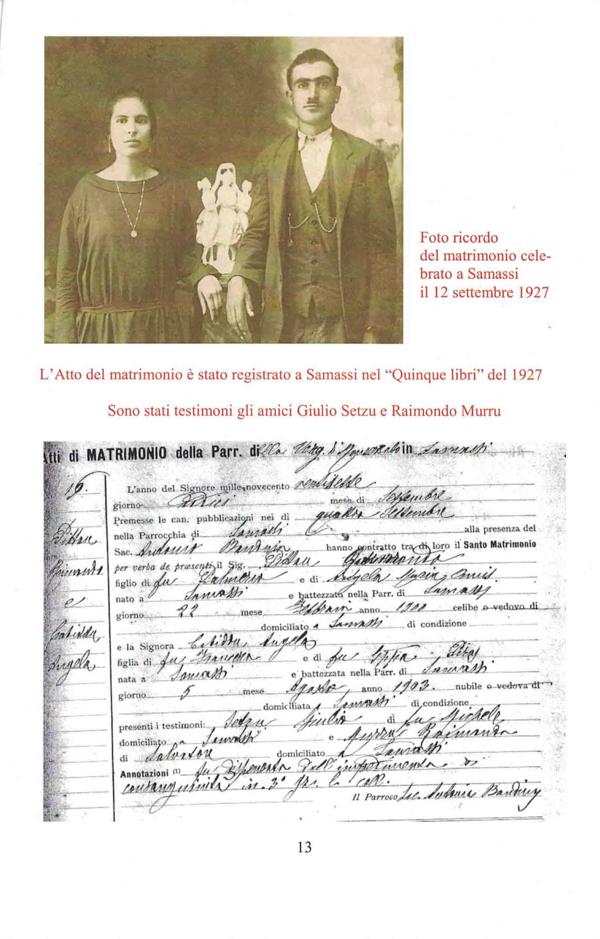 Foto ricordo
del matrimonio cele-
brato a Samassi
il 12 settembre 1927
L'Atto del matrimonio è stato registrato a Samassi nel “Quinque libri” del 1927
Sono stati testimoni gli amici Giulio Setzu e Raimondo Murru
Atti di MATRIMONIO della Parr. di in Samassi
L'anno del Signore mille novecento ventisette
giorno mese di Settembre
Premesse le can. pubblicazioni nei dì quattro Settembre
nella Parrocchia di Samassi alla presenza del
Sac. Antonio hanno contratto tra di loro il Santo Matrimonio
per verba de presenti il Sig. Pittau
Raimondo
figlio di fu e di Angela
nato a Samassi e battezzata nella Parr. di Samassi
e
giorno 22 mese anno 1900 celibe o vedovo di
domiciliato a Samassi di condizione
Angela
e la Signora Angela
figlia di fu e di fu
nata a Samassi e battezzata nella Parr. di Samassi
giorno 5 mese Agosto anno 1903. nubile o vedova di
domiciliata a Samassi di condizione
presenti i testimoni: Setzu Giulio di fu Michele
domiciliato a Samassi e Murru Raimondo
di Salvatore domiciliato a Samassi
Annotazioni (1) fu dispensato dall'impedimento di
consanguinità in 3°
Il Parroco Sac. Antonio
13